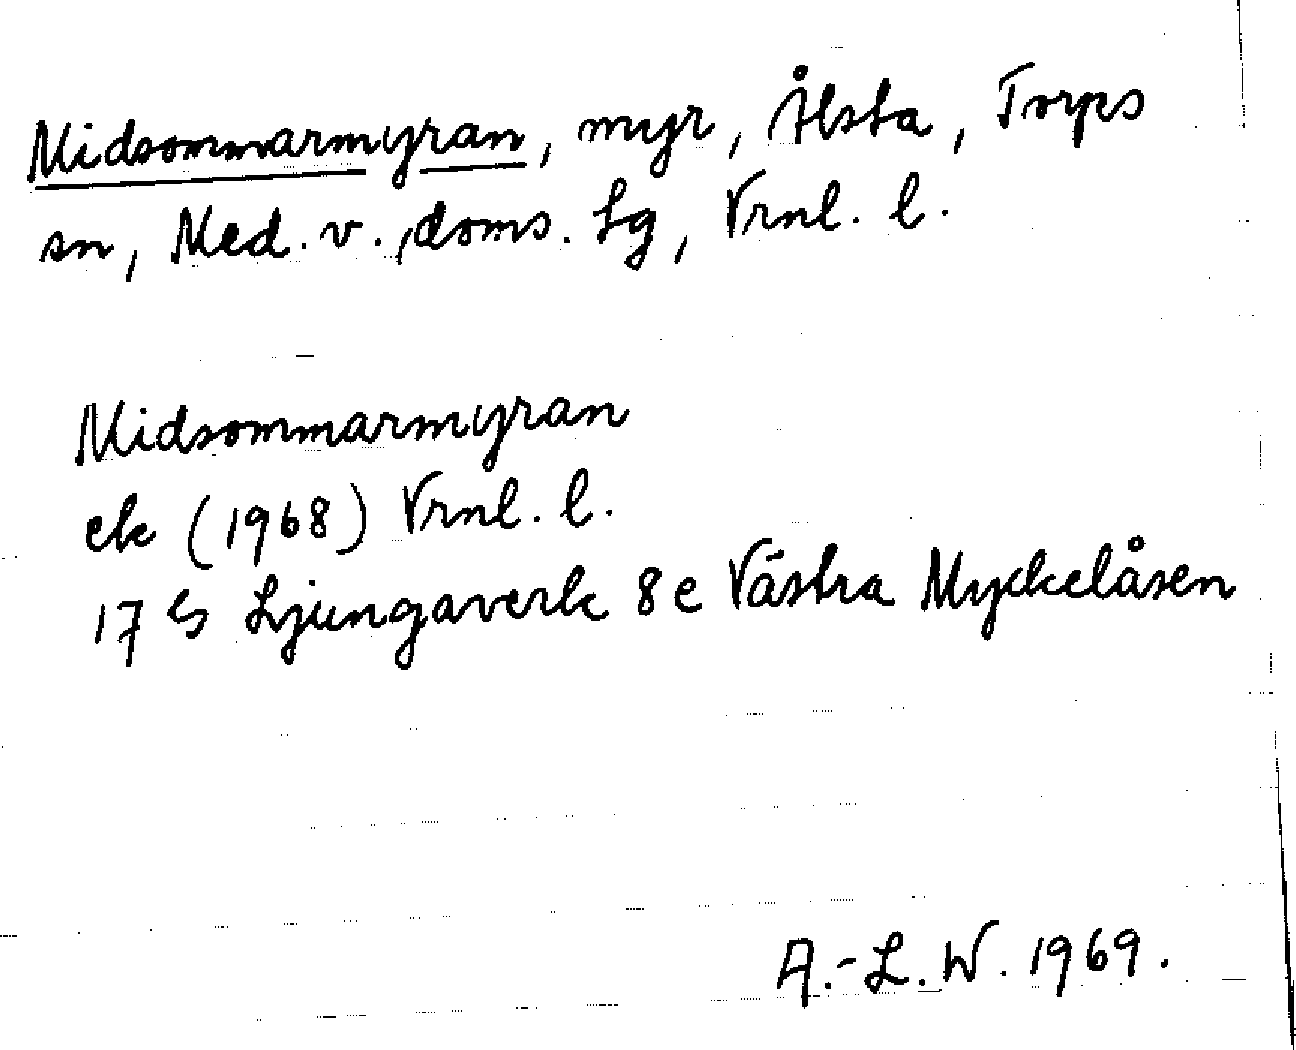 Midsommarmyran, myr, Ålsta, Torps
sn, Med. v., doms. Lg, Vrnl. l.
Midsommarmyran
ek (1968) Vrnl. l.
17 G Ljungaverk 8e Västra Myckelåsen
A.-L. W. 1969.